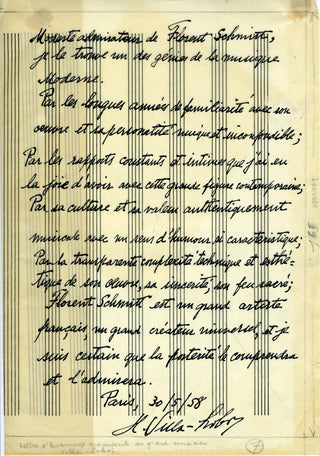 Modeste admirateur de Florent Schmitt,
je le trouve un des génies de la musique
Moderne.
Par les longues années de familiarité avec son
oeuvre et sa personalité unique et incorruptible;
Par les rapports constants et intimes que j'ai eu
la joie d'avoir avec cette grande figure contemporaine;
Par sa culture et sa valeur authentiquement
musicale avec un sens d'humour si caractéristique;
Par la transparente complexité technique et esthé-
tique de son oeuvre, sa sincerité, son feu sacré;
Florent Schmitt est un grand artiste
français, un grand créateur universel, et je
suis certain que la postérité le comprendra
et l'admirera.
Paris, 30/5/58
H. Villa-Lobos
Lettre d'hommage manuscrite du grand musicien
Villa-Lobos
7